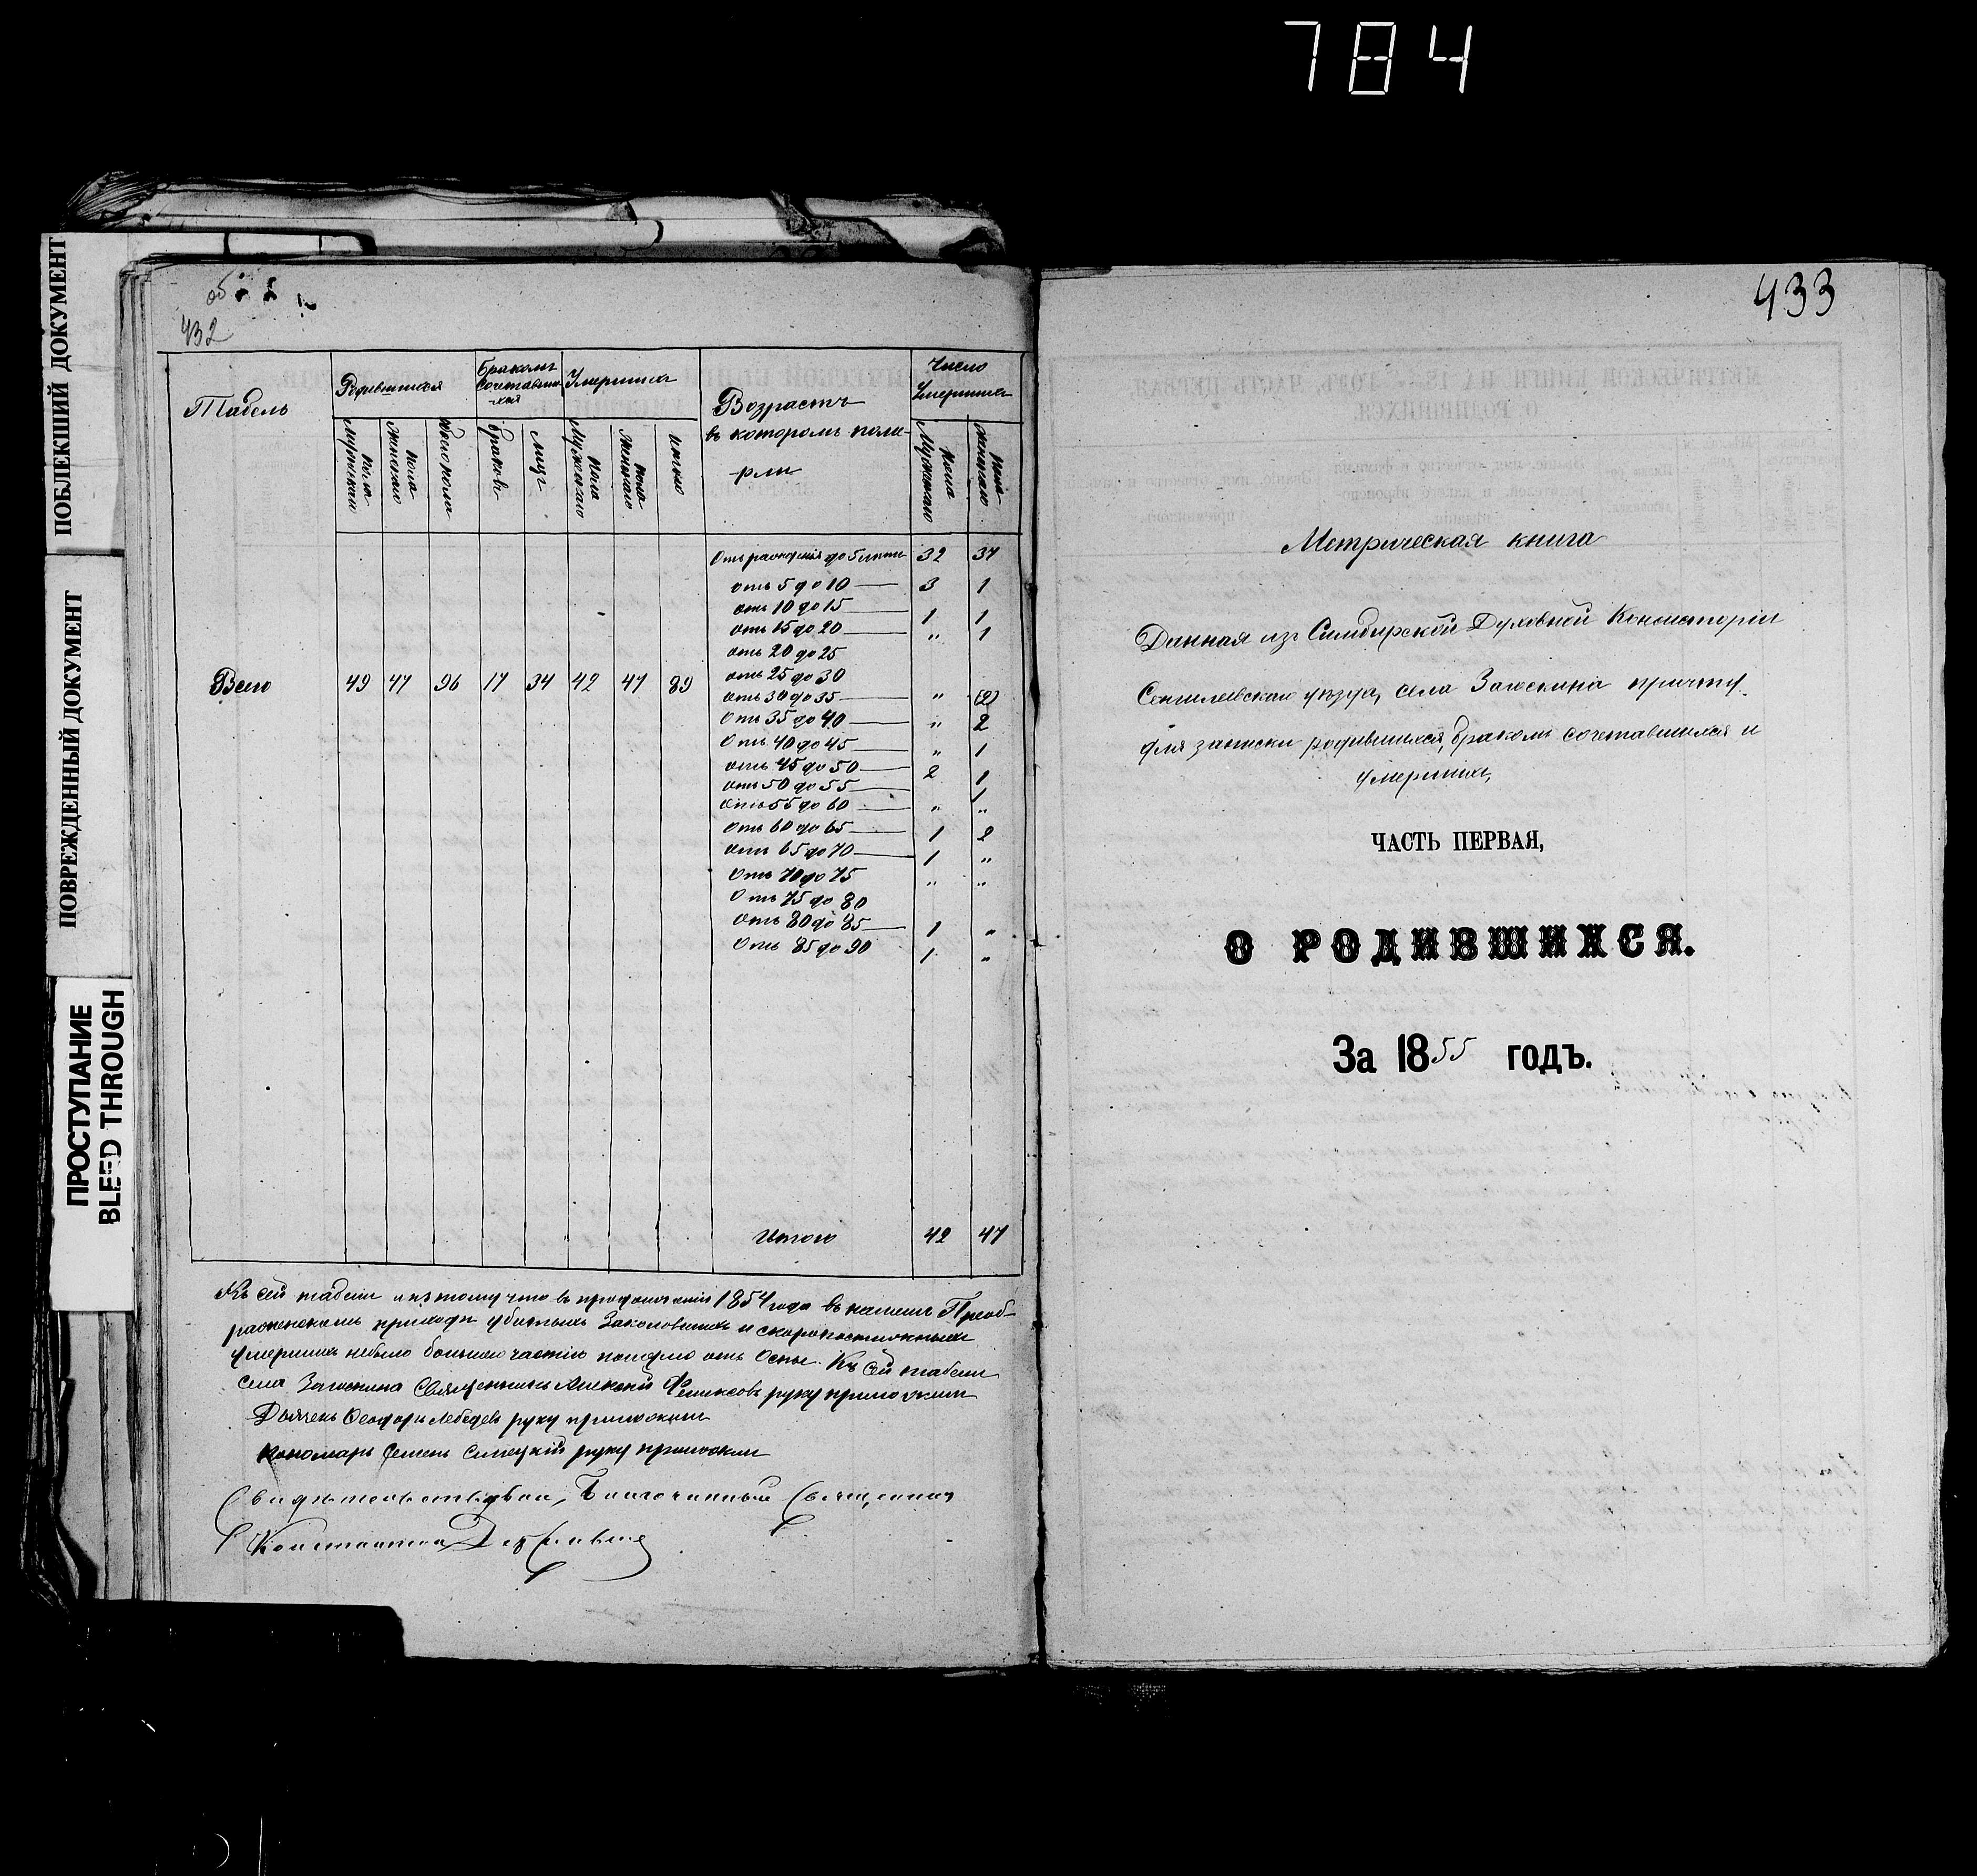 784
ПОБЛЕКШИЙ ДОКУМЕНТ
ПОВРЕЖДЕННЫЙ ДОКУМЕНТ
ПРОСТУПАНИЕ
BLEED THROUGH
об
432
Табель
Родившихся
Бракомъ
Сочетавши
-хся
Умершихъ
Возрастъ
въ которомъ поме-
-рли
Число
Умершихъ
Мужскаго пола
Женскаго пола
Обоего пола
Браковъ
Лицъ
Мужскаго пола
Женскаго пола
итого
Мужскаго пола
Женскаго пола
Отъ рожденія до 5 лѣтъ 32 37
отъ 5 до 10 — 3 1
отъ 10 до 15 — 1 1
отъ 15 до 20 — " 1
отъ 20 до 25
отъ 25 до 30
Всего 49 47 96 17 34 42 47 89
отъ 30 до 35 — " (2)
Отъ 35 до 40 — " 2
Отъ 40 до 45 — " 1
отъ 45 до 50 — 2 1
отъ 50 до 55 — 1
отъ 55 до 60 — " "
отъ 60 до 65 — 1 2
отъ 65 до 70 — 1 "
Отъ 70 до 75 " "
Отъ 75 до 80
Отъ 80 до 85 — 1 "
Отъ 85 до 90 1 "
Итого 42 47
Къ сей табели что въ продолженіи 1854 года въ нашемъ Преоб-
раженскомъ приходѣ убитыхъ Заколовшихъ и скоропостижныхъ
умершихъ небыло большею частію померло отъ Оспы. Къ сей табели
села Загоскина Священникъ Алексѣй Фениксовъ руку приложилъ
Дьячекъ Ѳеодоръ Лебедев руку приложилъ
Пономарь Семенъ руку приложилъ
Свидѣтельствовалъ, Благочинный Священникъ
Константинъ
433
Метрическая книга
Данная изъ Симбирской Духовной Консисторіи
Сенгилеевскаго уѣзда, села Загоскина причту
для записки родившихся, бракомъ сочетавшихся и
умершихъ,
ЧАСТЬ ПЕРВАЯ,
О РОДИВШИХСЯ.
За 1855 годъ.